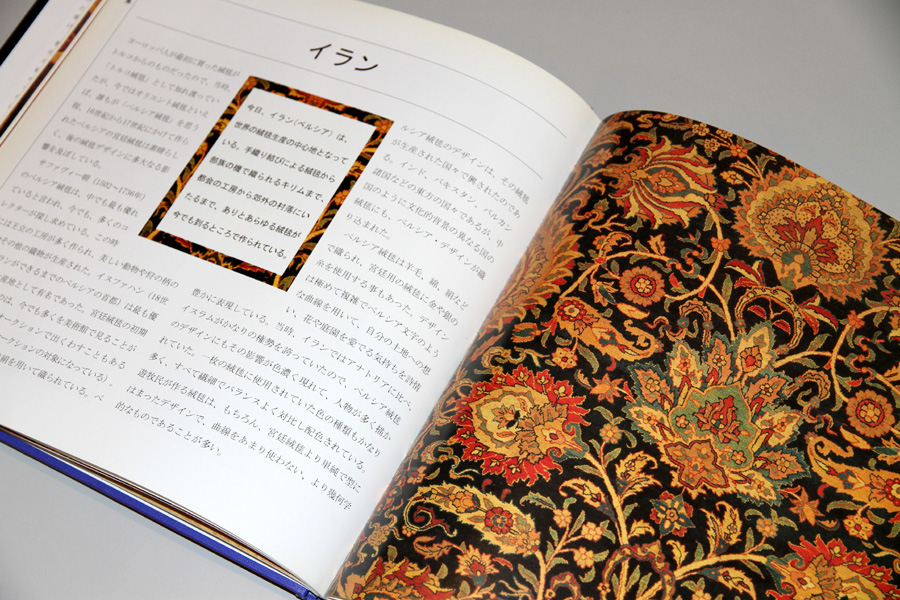 イラン
ヨーロッパ人が最初に買った絨毯が
トルコからのものだったので、当時、
「トルコ絨毯」として知れ渡ってい
たが、今ではオリエント絨毯といえ
ば、誰もが「ペルシア絨毯」を思う
程、16世紀から17世紀にかけて作ら
れたペルシアの宮廷絨毯は素晴らし
く、後の絨毯デザインに多大なる影
響を及ぼしている。
サファヴィー朝（1502〜1736年）
のペルシア絨毯は、中でも最も優れ
ていると言われ、今でも、多くのコ
レクターが探し求めている。この時
には王立の工房が多く作られ、美しい動物や狩の柄の
その他の織物が生産された。イスファハン（18世
ランができるまでのペルシアの首都）は最も優
産地として有名であった。宮廷絨毯の初期
のは、今でも多くを美術館で見ることが
オークションで出くわすこともある
ークションの対象になっている）。
絹を用いて織られている。ペ
今日、イラン（ペルシア）は、
世界の絨毯生産の中心地となって
いる。手織り結びによる絨毯から
部族の機で織られるキリムまで、
都会の工房から郊外の村落にい
たるまで、ありとあらゆる絨毯が
今でも到るところで作られている。
ルシア絨毯のデザインは、その絨毯
が生産された国々で興されたのであ
る。インド、パキスタン、バルカン
諸国などの東方の国々であるが、中
国のように文化的背景の異なる国の
絨毯にも、ペルシア・デザインが織
り込まれた。
ペルシア絨毯は羊毛、絹、絹など
で織られ、宮廷用の絨毯に金や銀の
糸を使用する事もあった。デザイン
は極めて複雑でペルシア文字のよう
な曲線を用いて、自分の土地への想
い、花や庭園を愛でる気持ちを詩情
豊かに表現している。当時、イランではアナトリアに比べ、
イスラムがかなりの権勢を誇っていたので、ペルシア絨毯
のデザインにもその影響が色濃く現れて、人物が多く描か
れていた。一枚の絨毯に使用されていた色の種類もかなり
多く、すべて繊細でバランスよく対比し配色されている。
遊牧民が作る絨毯は、もちろん、宮廷絨毯より単純で型に
はまったデザインで、曲線をあまり使わない、より幾何学
的なものであることが多い。